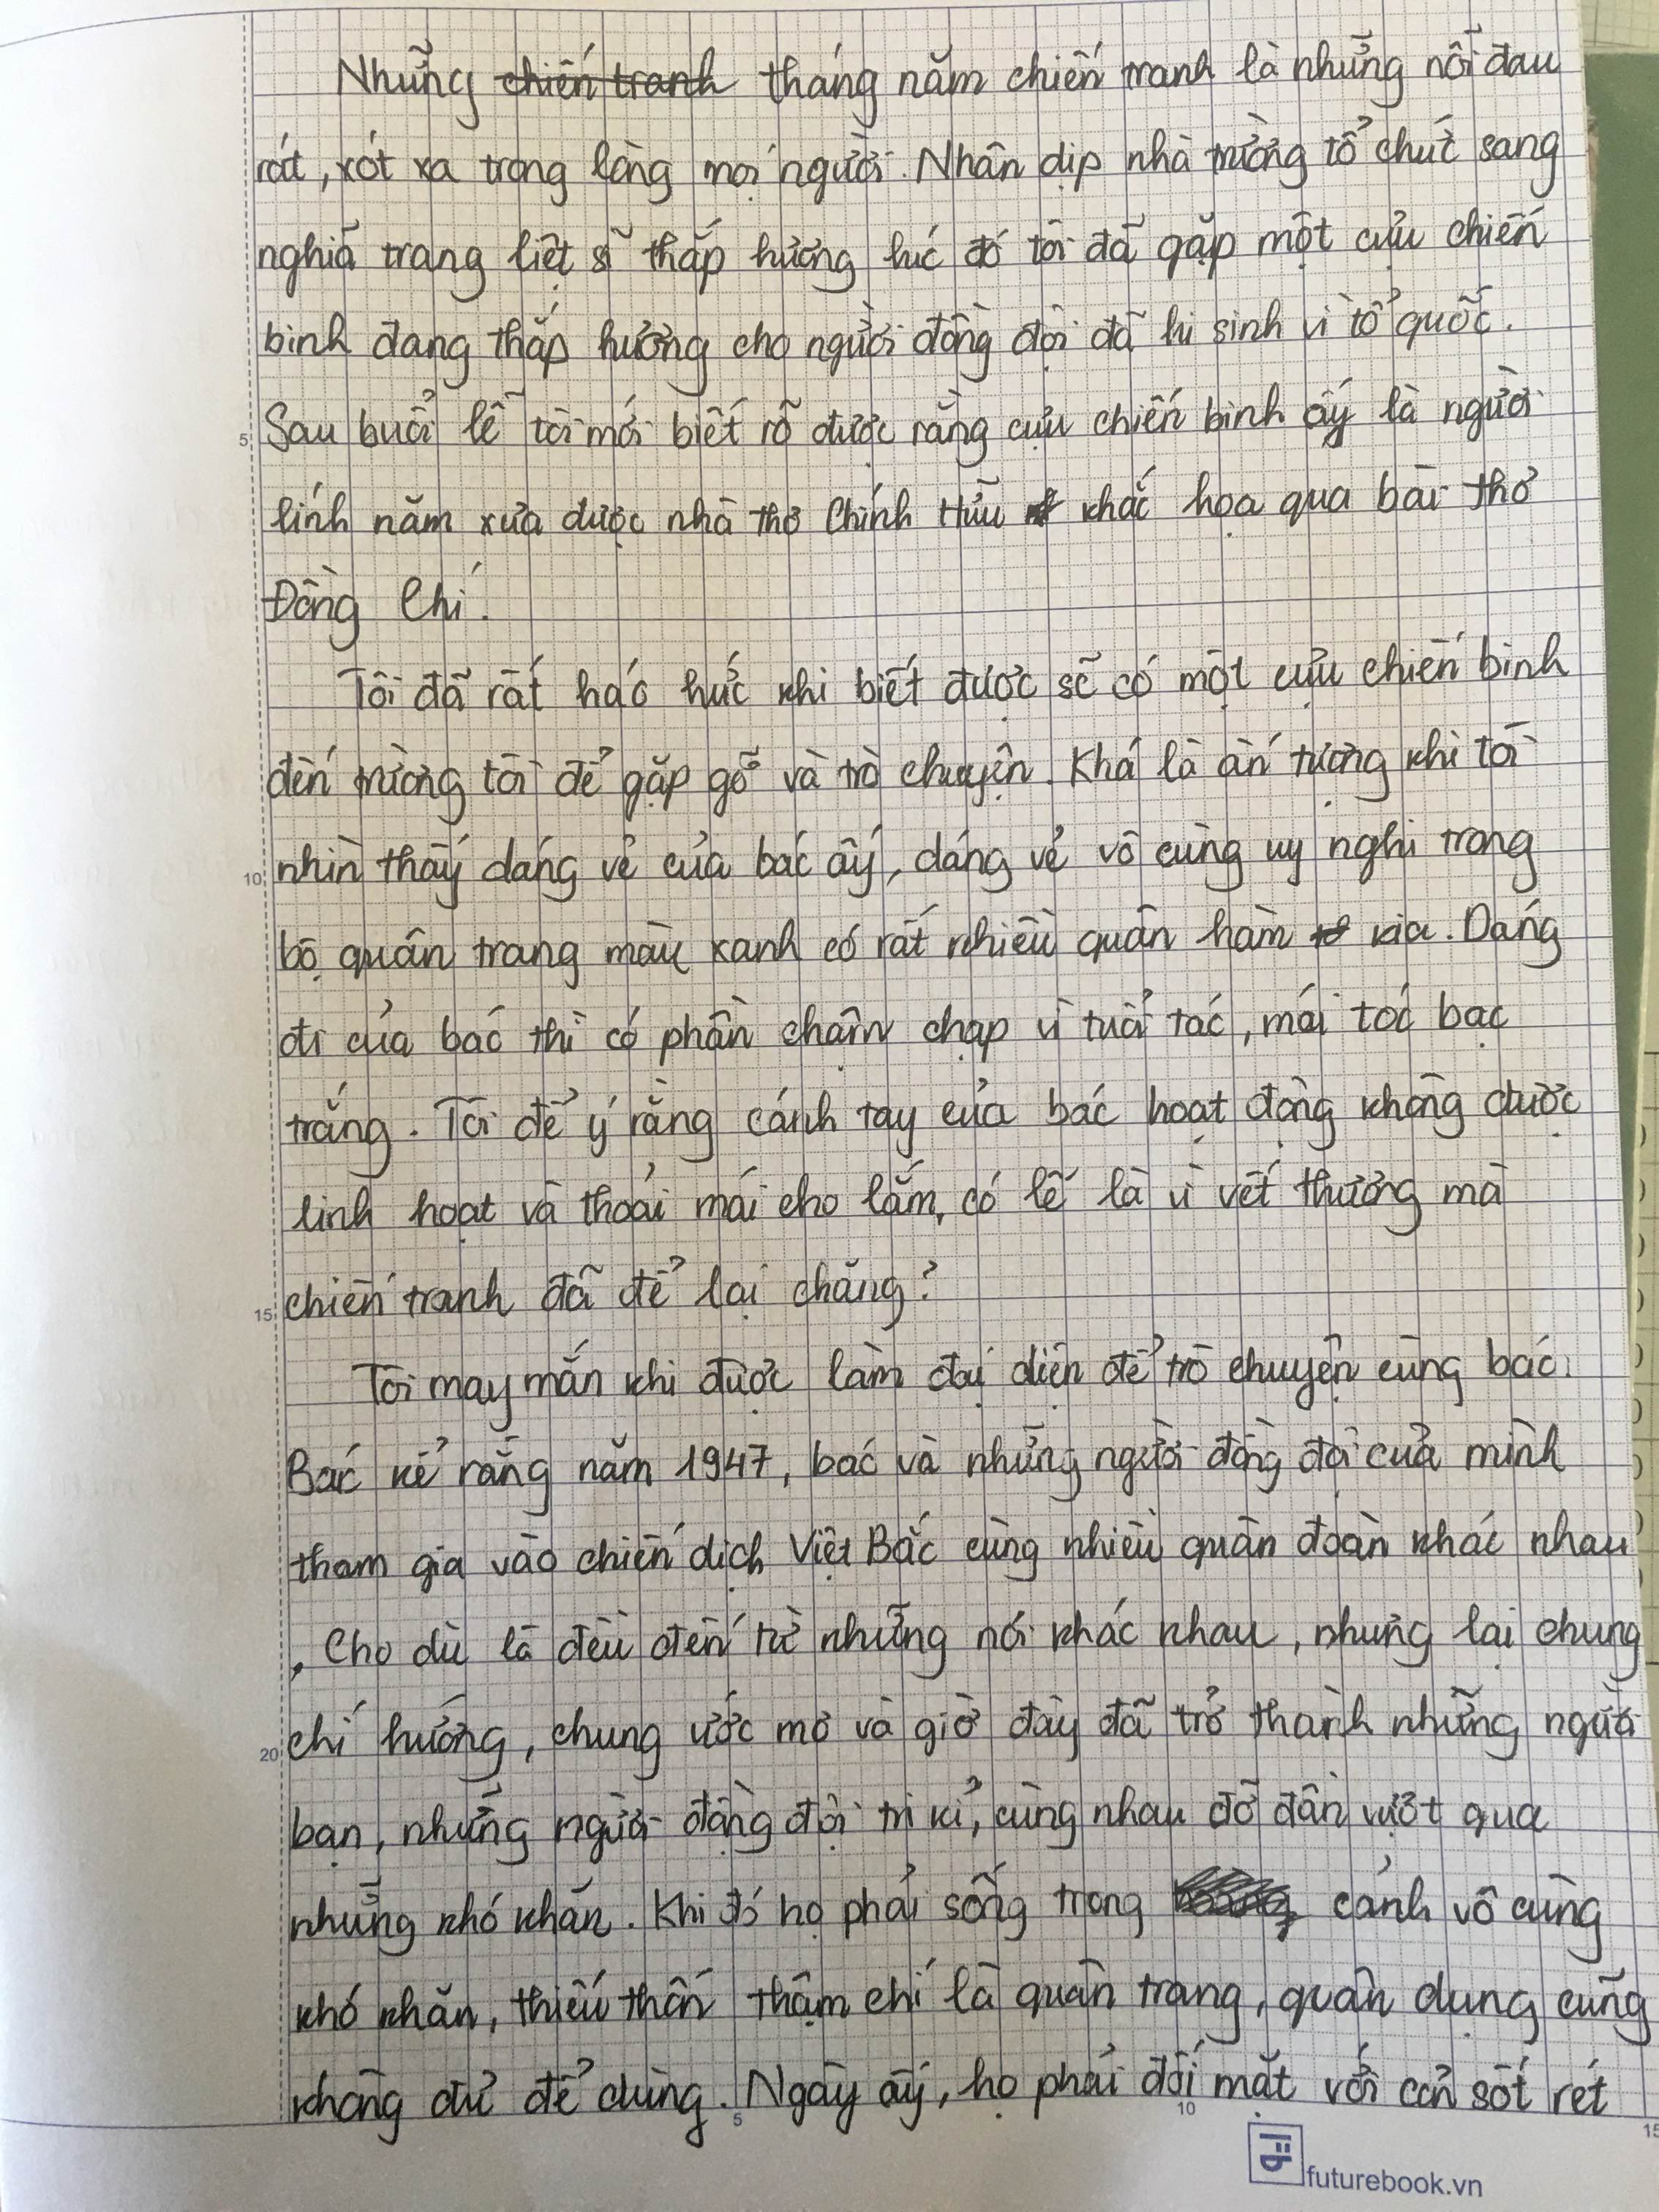 Những chiến tranh tháng năm chiến tranh là những nỗi đau
rát, xót xa trong lòng mọi người. Nhân dịp nhà trường tổ chức sang
nghĩa trang liệt sĩ thắp hương lúc đó tôi đã gặp một cựu chiến
binh đang thắp hương cho người đồng đội đã hi sinh vì tổ quốc.
5 Sau buổi lễ tôi mới biết rõ được rằng cựu chiến binh ấy là người
lính năm xưa được nhà thơ Chính Hữu khắc họa qua bài thơ
Đồng Chí.
Tôi đã rất háo hức khi biết được sẽ có một cựu chiến binh
đến trường tôi để gặp gỡ và trò chuyện. Khá là ấn tượng khi tôi
10 nhìn thấy dáng vẻ của bác ấy, dáng vẻ vô cùng uy nghi trong
bộ quân trang màu xanh có rất nhiều quân hàm kia. Dáng
đi của bác thì có phần chậm chạp vì tuổi tác, mái tóc bạc
trắng. Tôi để ý rằng cánh tay của bác hoạt động không được
linh hoạt và thoải mái cho lắm, có lẽ là vì vết thương mà
15 chiến tranh đã để lại chăng?
Tôi may mắn khi được làm đại diện để trò chuyện cùng bác.
Bác kể rằng năm 1947, bác và những người đồng đội của mình
tham gia vào chiến dịch Việt Bắc cùng nhiều quân đoàn khác nhau
, Cho dù là đều đến từ những nơi khác nhau, nhưng lại chung
20 chí hướng, chung ước mơ và giờ đây đã trở thành những người
bạn, những người đồng đội tri kỉ, cùng nhau đỡ đần vượt qua
những khó khăn. Khi đó họ phải sống trong cảnh vô cùng
khó khăn, thiếu thốn thậm chí là quân trang, quân dụng cũng
không đủ để dùng. Ngày ấy, họ phải đối mặt với cơn sốt rét
5 10 15
futurebook.vn